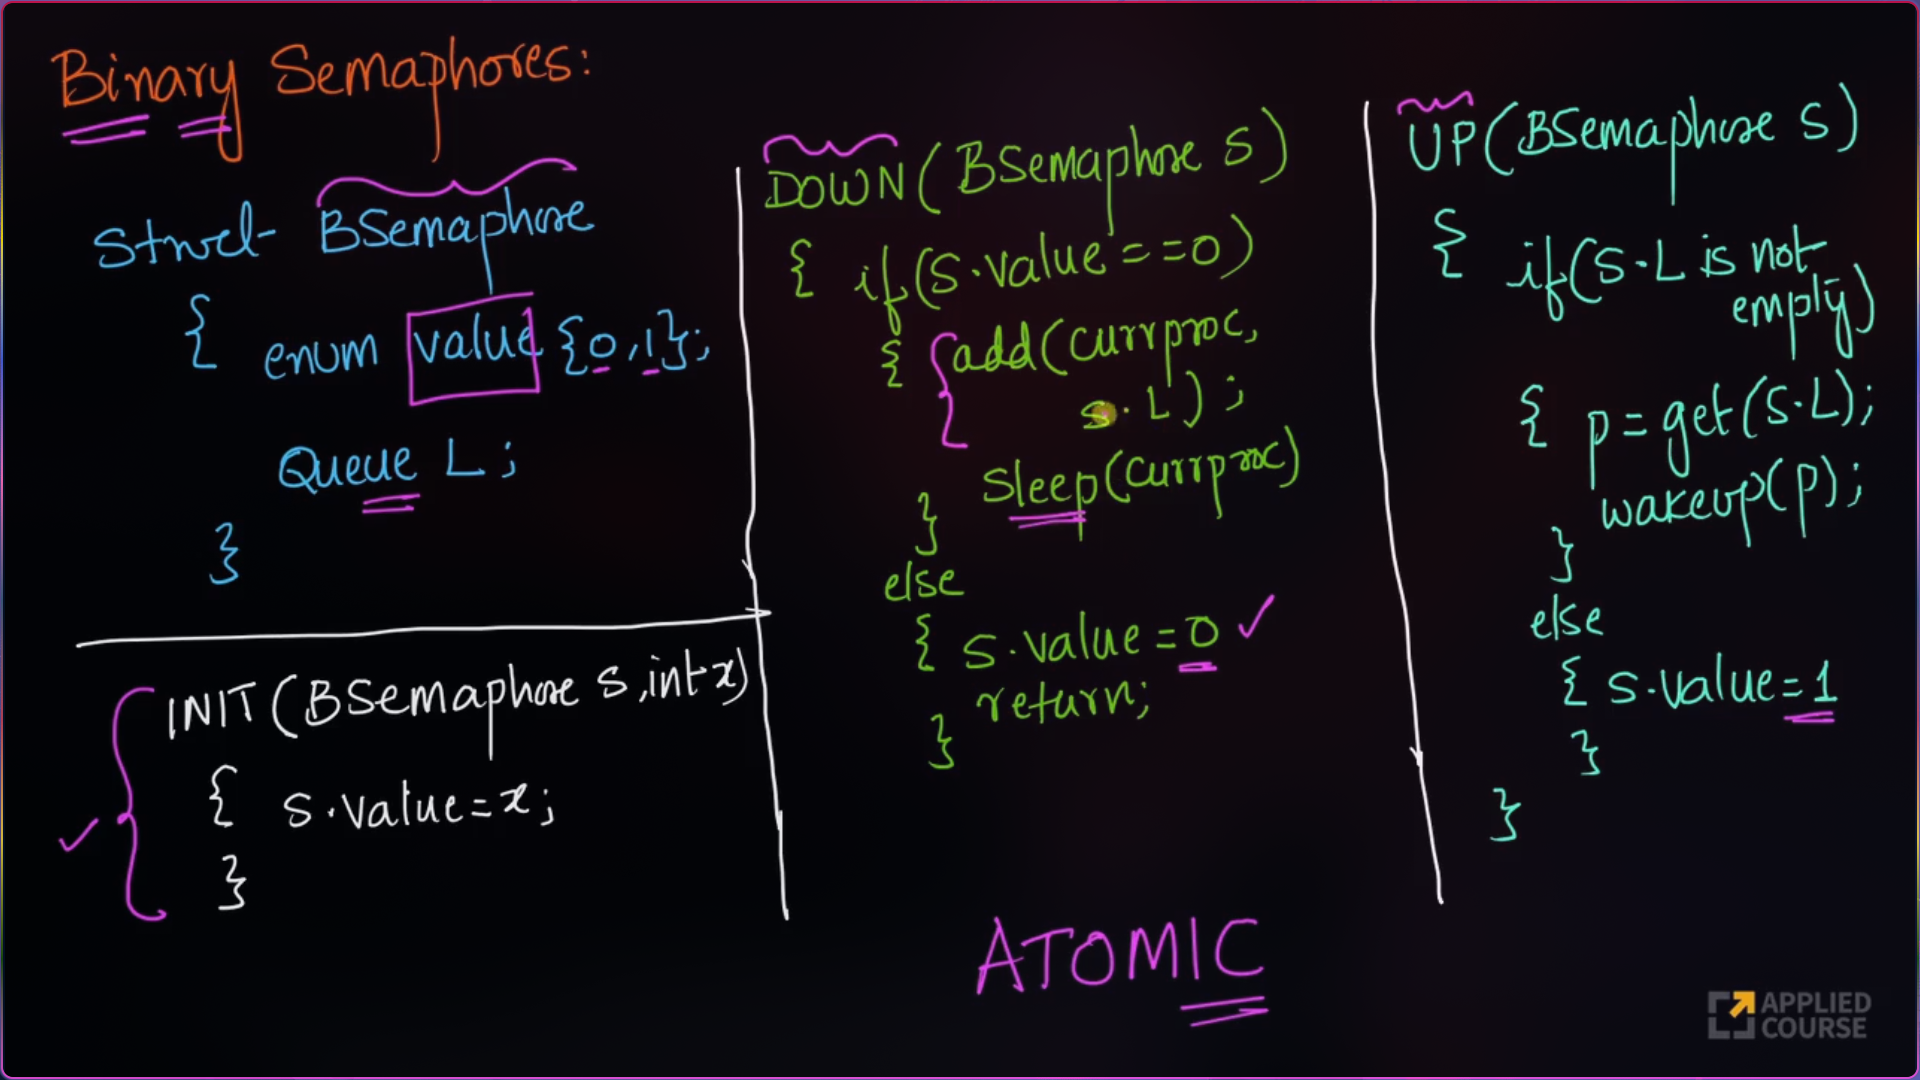 Binary Semaphores:
Struct BSemaphore
{ enum value {0,1};
Queue L;
}
INIT(BSemaphore S, int x)
{ S.value=x;
}
DOWN(BSemaphore S)
{ if(S.value==0)
{ add(currproc,
S.L);
Sleep(currproc)
}
else
{ S.value=0
return;
}
UP(BSemaphore S)
{ if(S.L is not
empty)
{ p=get(S.L);
wakeup(p);
}
else
{ S.value=1
}
}
ATOMIC
APPLIED
COURSE